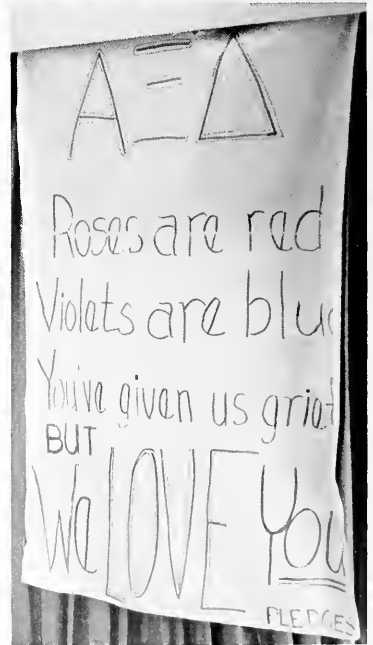 ΑΞΔ
Roses are red
Violets are blue
You've given us grief
BUT
We LOVE You
PLEDGES